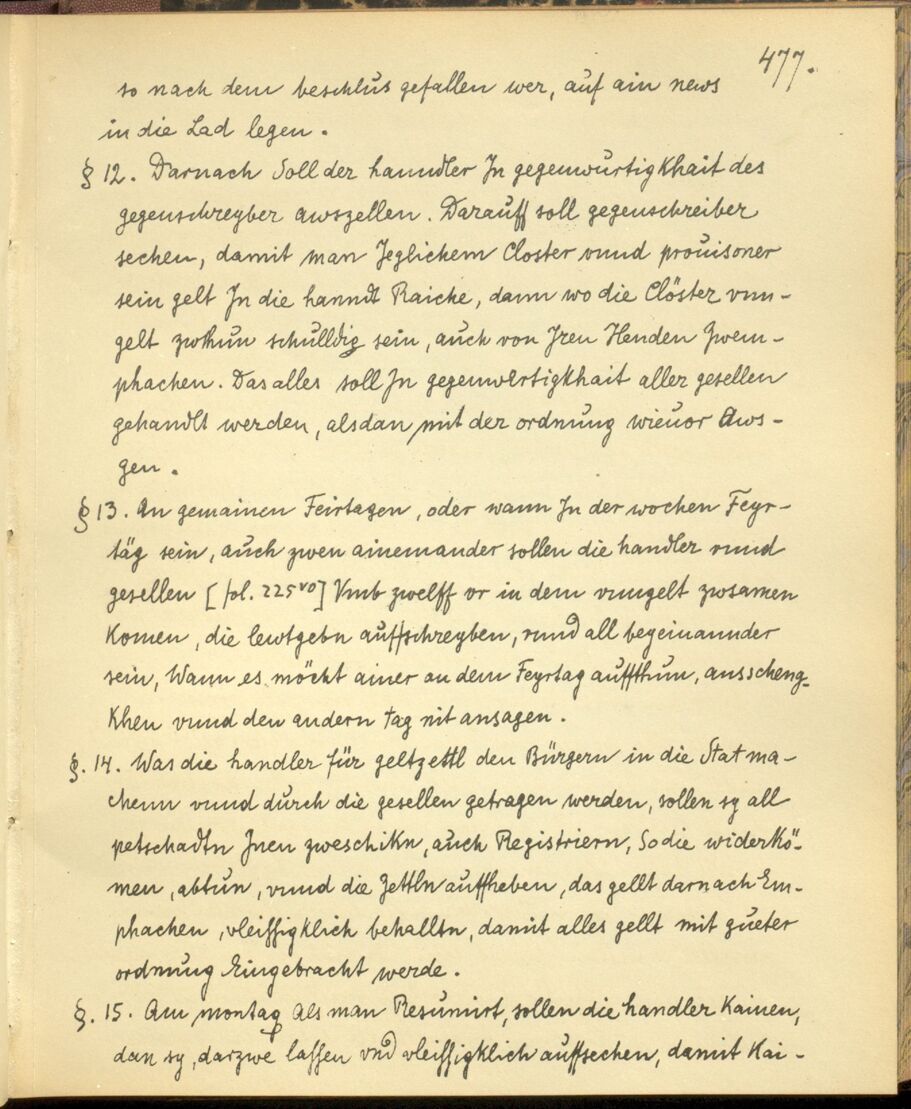 477.
so nach dem beschlus gefallen wer, auf ain news
in die Lad legen.
§ 12. Darnach Soll der hanndler In gegenwürtigkhait des
gegenschreyber awszellen. Darauff soll gegenschreiber
sechen, damit man Jeglichem Closter vnnd prouisoner
sein gelt In die hanndt Raiche, dann wo die Clöster vnn-
gelt zwthun schulldig sein, auch von Jren Henden Zwem-
phachen. Das alles soll In gegenwertigkhait aller gesellen
gehandlt werden, alsdan mit der ordnung wieuor Aws-
gen.
§ 13. An gemainen Feirtagen, oder wann In der wochen Feyr-
täg sein, auch zwen aineinander sollen die handler vnnd
gesellen [fol. 225vo] Vmb zwelff vr in dem vnngelt zwsamen
Komen, die lewtgebn auffschreyben, vnnd all begeinannder
sein, Wann es möcht ainer an dem Feyrtag auffthun, ausscheng-
Khen vnnd den andern tag nit ansagen.
§. 14. Was die handler für geltzettl den Bürgern in die Stat ma-
chenn vnnd durch die gesellen getragen werden, sollen sy all
petschadtn Jnen zweschikn, auch Registriern, So die widerKö-
men, abtun, vnnd die Zettln auffheben, das gellt darnach Em-
phachen, vleissigklich behalltn, damit alles gellt mit gueter
ordnung Eingebracht werde.
§. 15. Am montag als man Resumirt, sollen die handler Kainen,
dan sy, darzwe lassen vnd vleissigklich auffsechen, damit Kai-